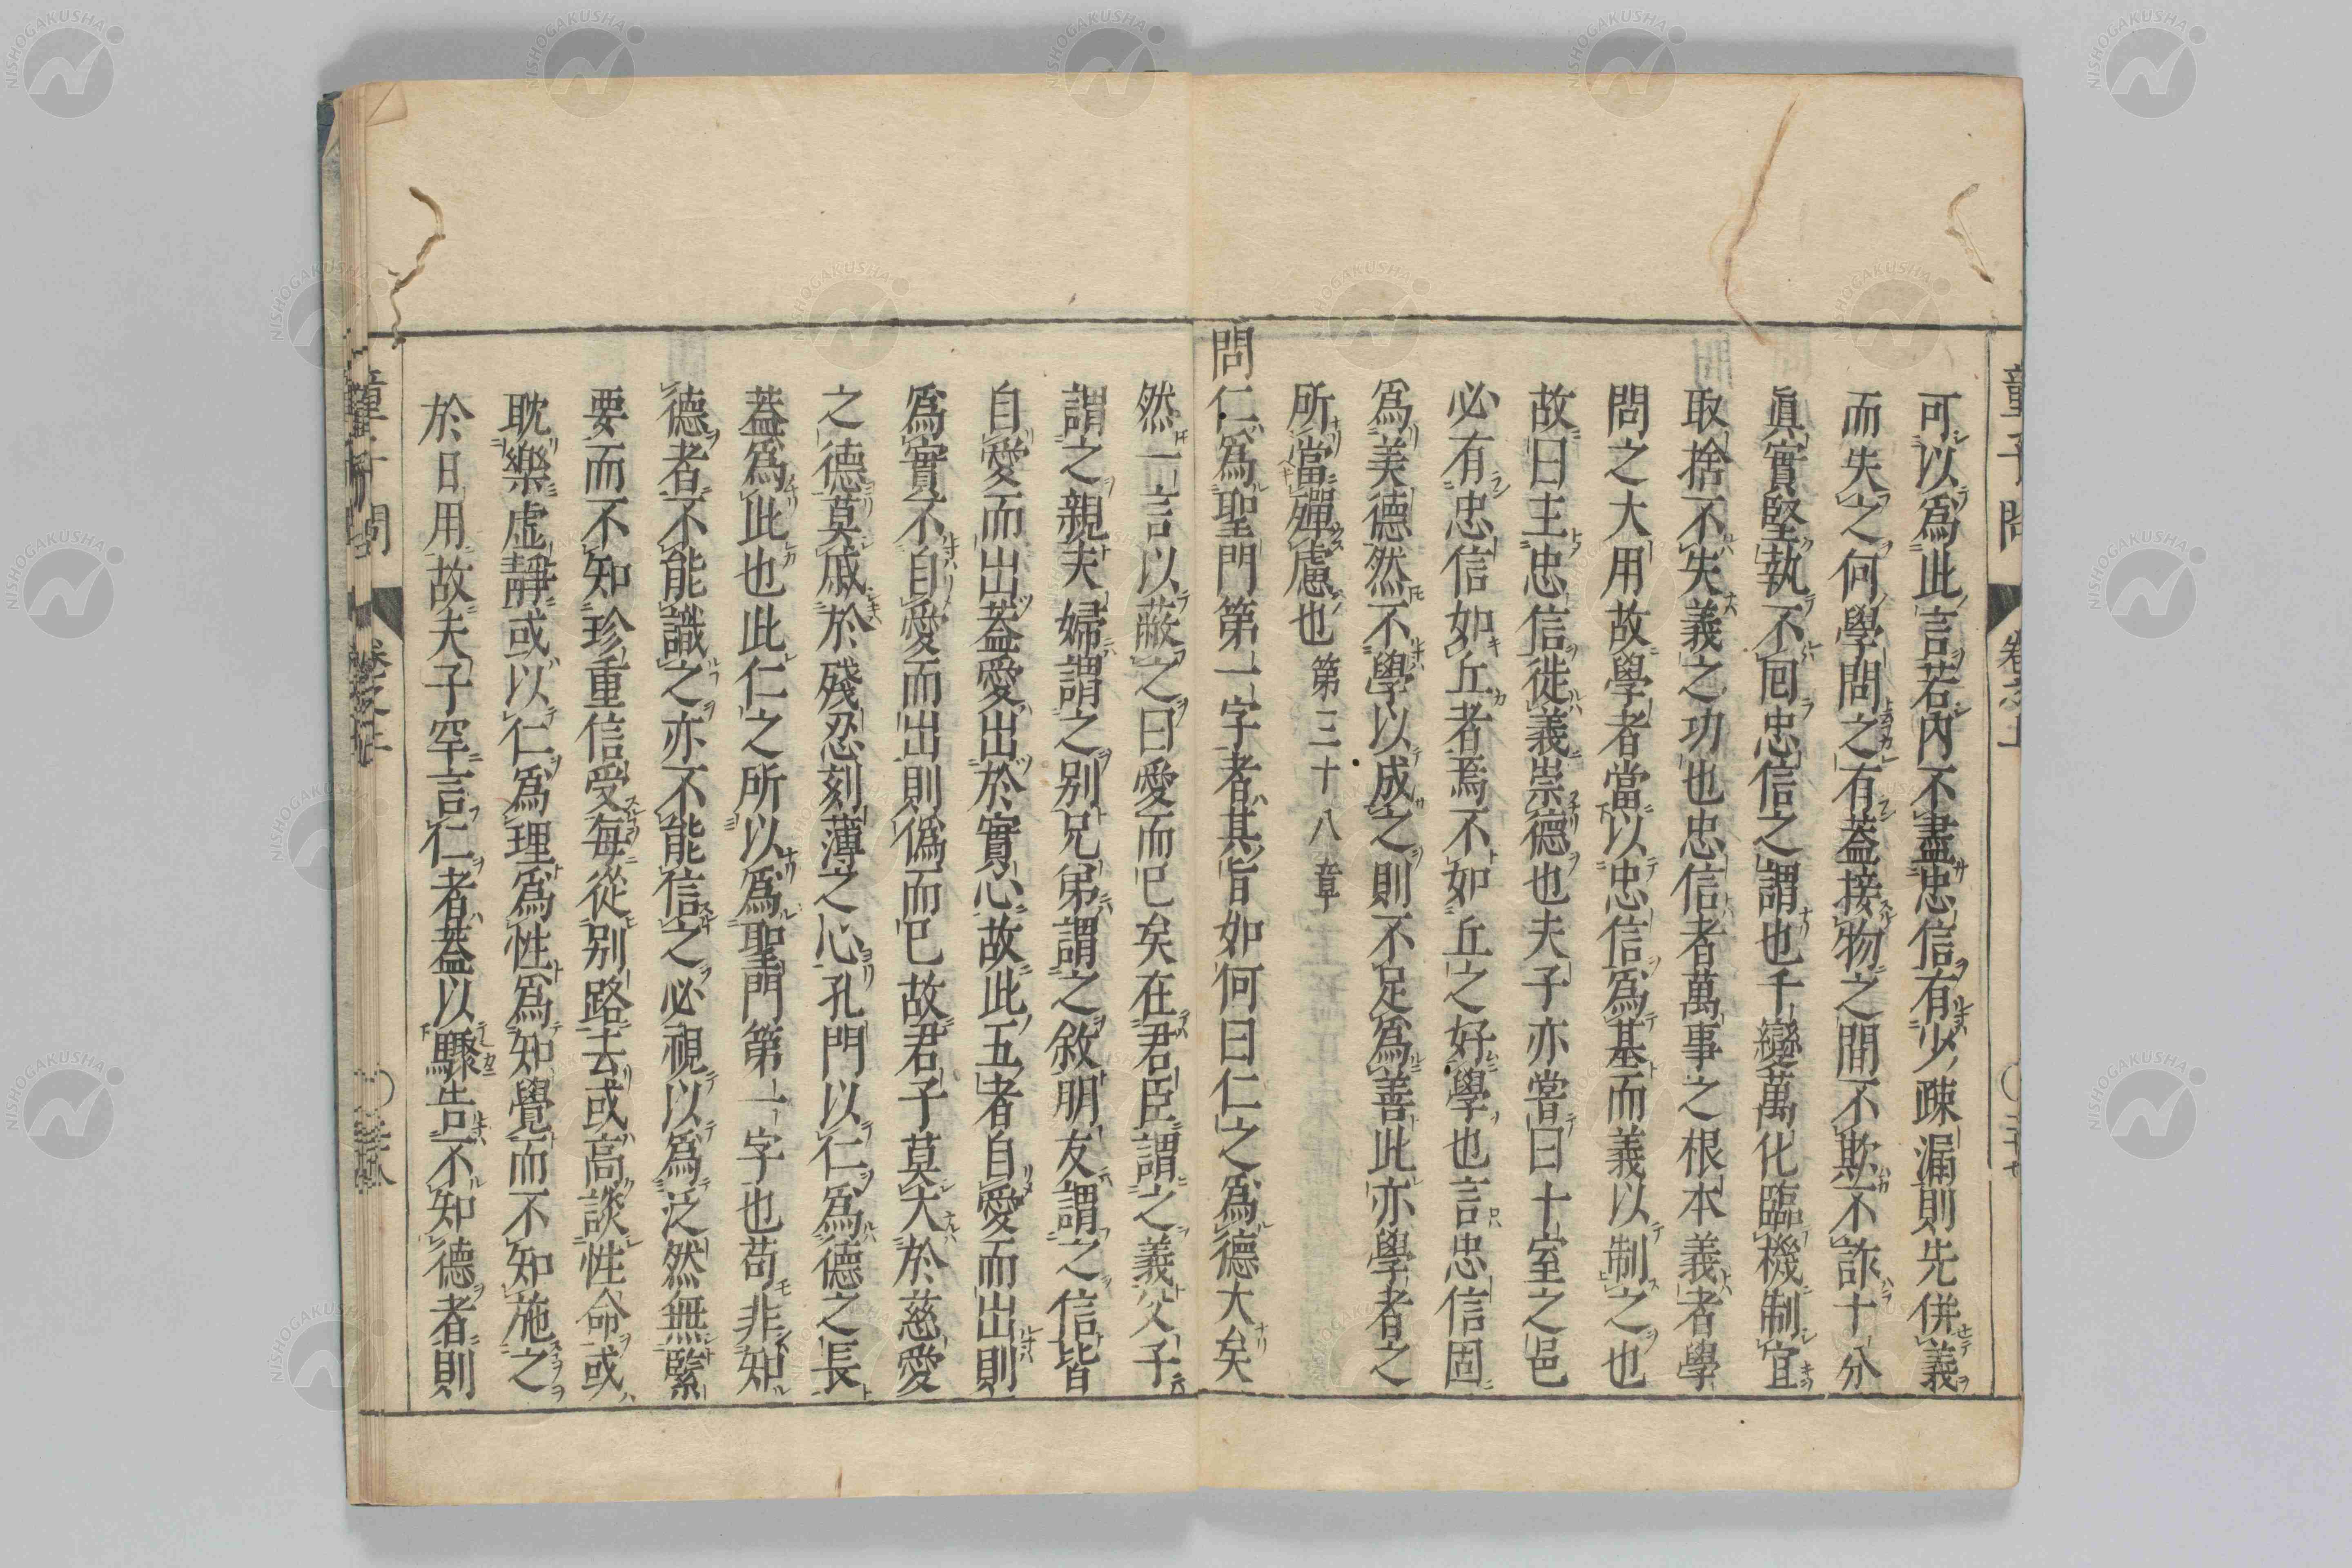 可以爲此言若内不盡忠信有少疎漏則先併義
而失之何學問之有蓋接物之間不欺不詐十分
眞實堅執不回忠信之謂也千變萬化臨機制宜
取捨不失義之功也忠信者萬事之根本義者學
問之大用故學者當以忠信爲基而義以制之也
故曰主忠信徙義崇德也夫子亦嘗曰十室之邑
必有忠信如丘者焉不如丘之好學也言忠信固
爲美德然不學以成之則不足爲善此亦學者之
所當殫慮也 第三十八章
問仁爲聖門第一字者其旨如何曰仁之爲德大矣
然一言以蔽之曰愛而已矣在君臣謂之義父子
謂之親夫婦謂之別兄弟謂之敘朋友謂之信皆
自愛而出蓋愛出於實心故此五者自愛而出則
爲實不自愛而出則僞而已故君子莫大於慈愛
之德莫戚於殘忍刻薄之心孔門以仁爲德之長
蓋爲此也此仁之所以爲聖門第一字也苟非知
德者不能識之亦不能信之必視以爲泛然無緊
要而不知珍重信受每從別路去或高談性命或
耽樂虛靜或以仁爲理爲性爲知覺而不知施之
於日用故夫子罕言仁者蓋以驟告不知德者則
童子問
卷之上
NISHOGAKUSHA